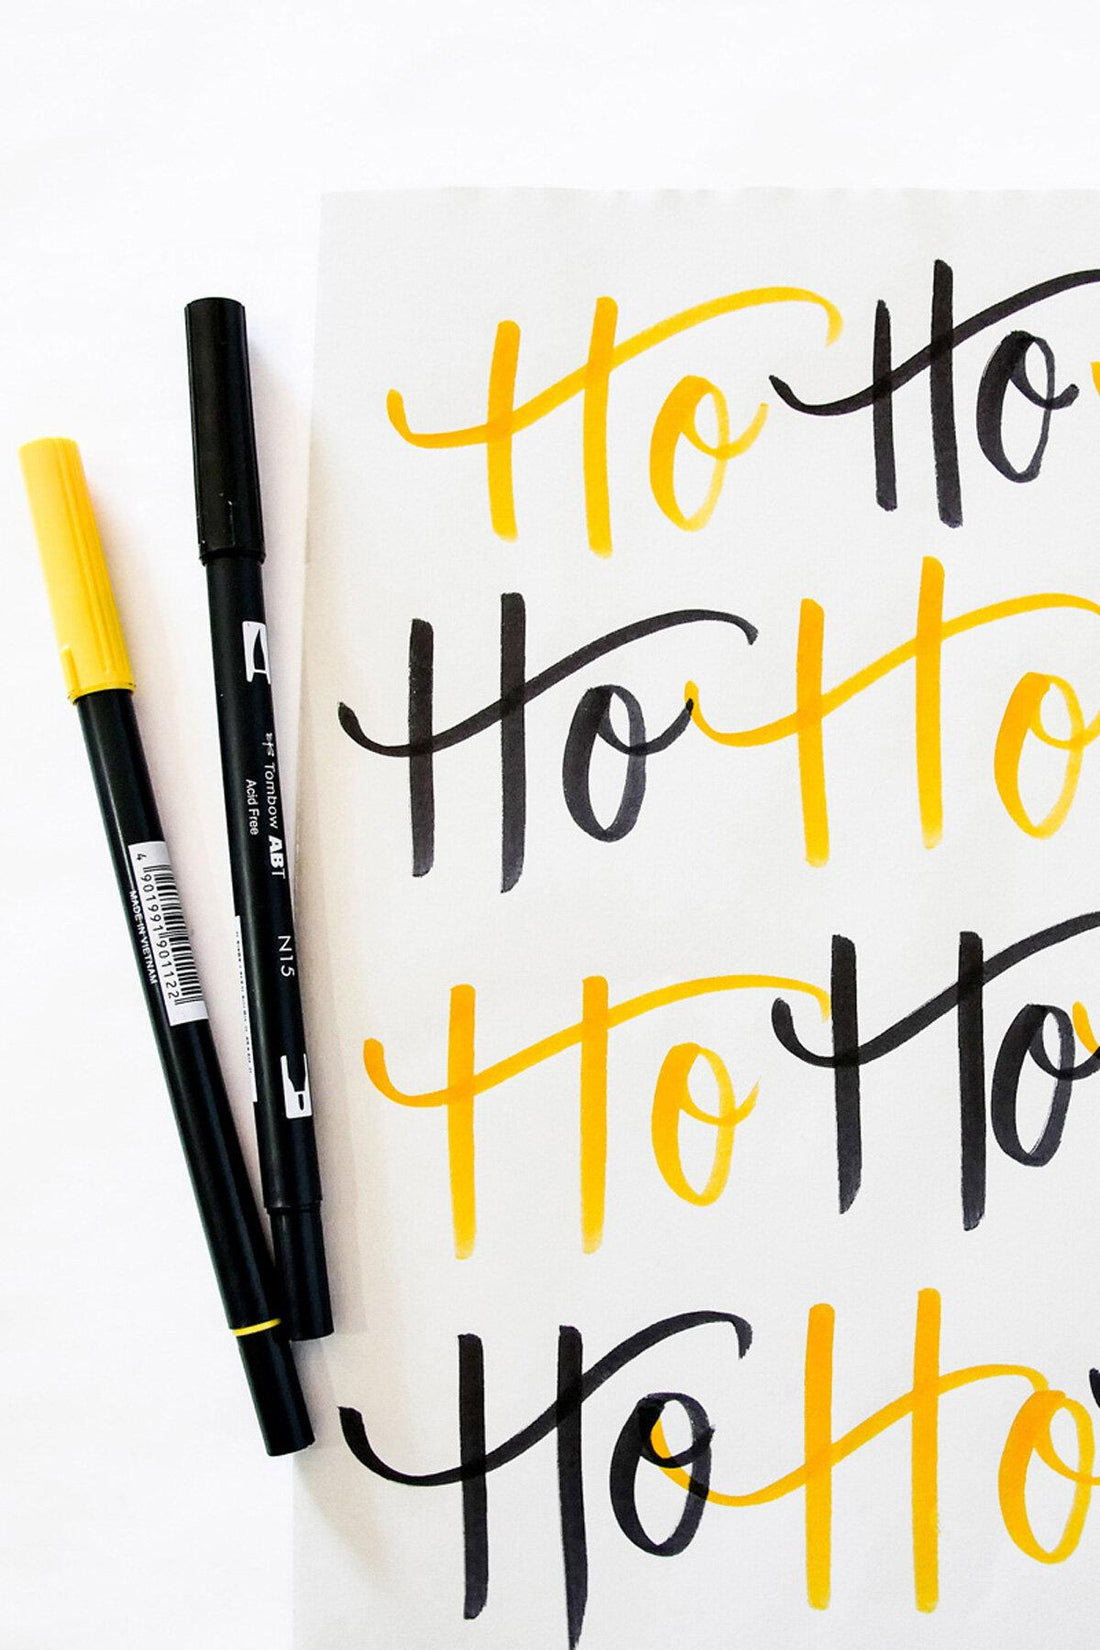 Ho Ho
Ho Ho
Ho Ho
Ho Ho
Tombow ABT
Acid Free
N15
4 901991 901122
MADE IN VIETNAM